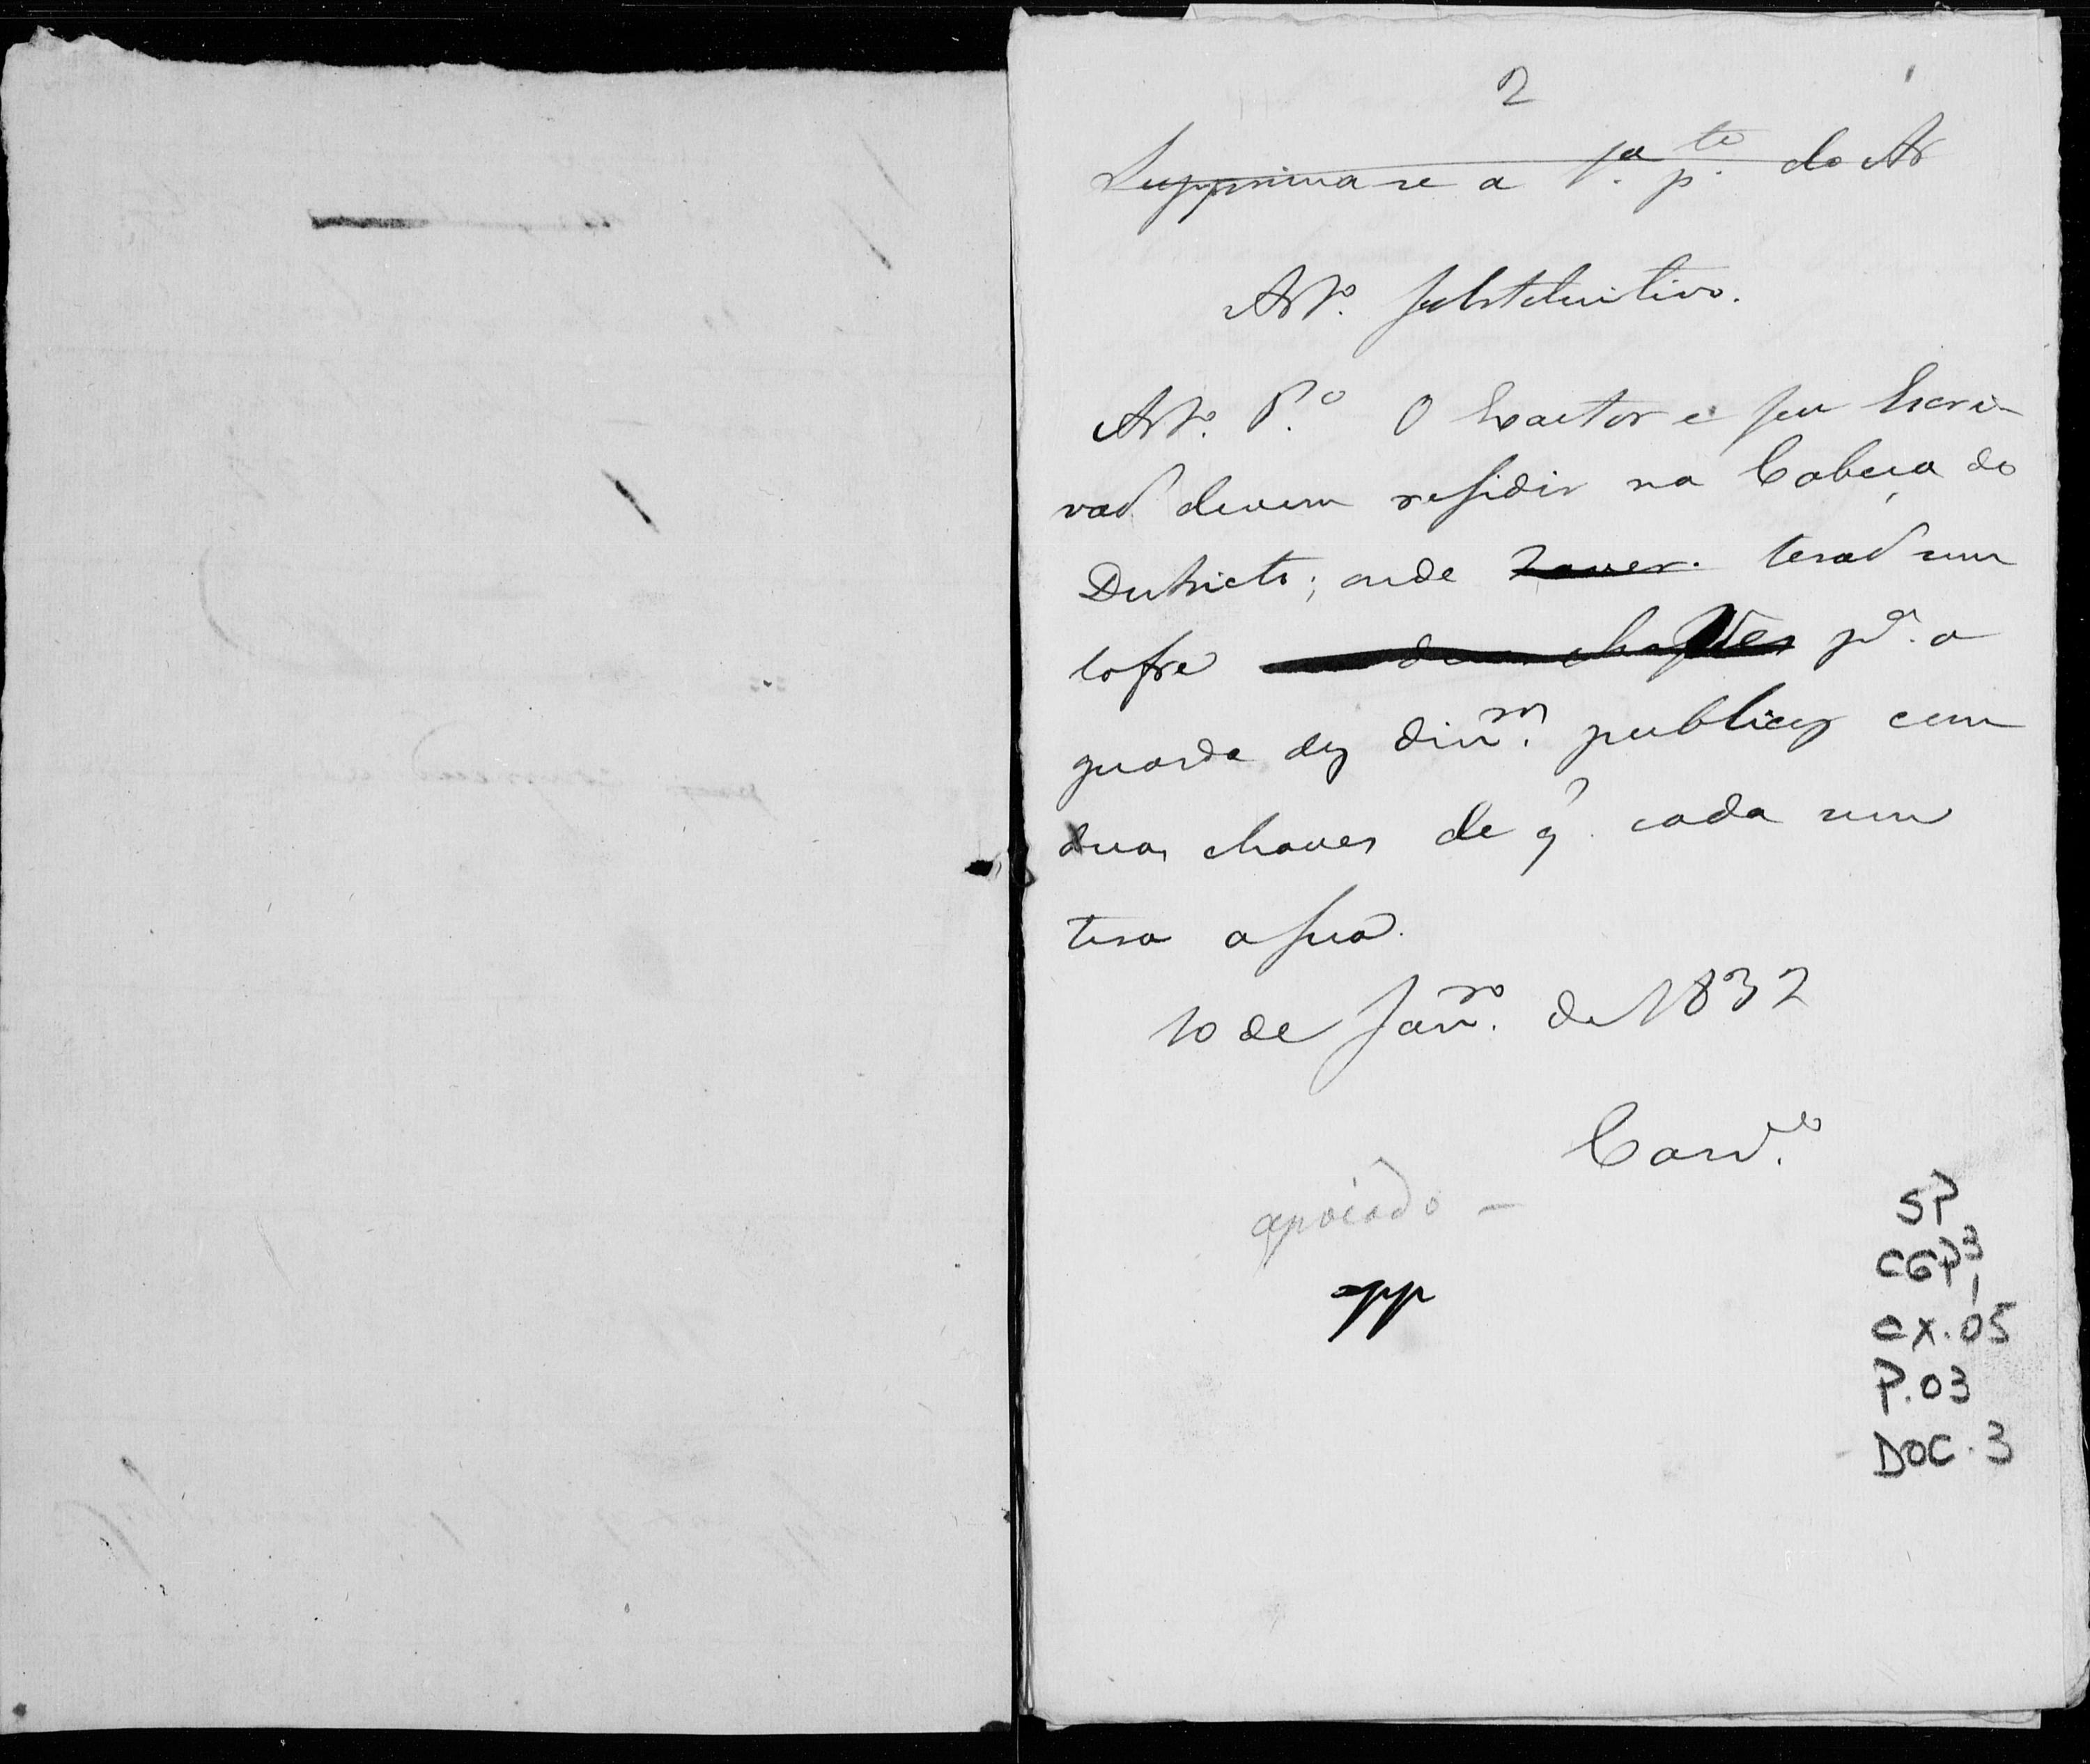 2
Supprima se a 1.ª p.te do Ar
Art.º substituitivo.
Art.º 1.º O Exactor e seu Escri-
vaõ devem residir na Cabeça do
Districto; onde haver. teraõ um
cofre chaves p.ª a
guarda dos dinr.os publicos com
duas chaves de q. cada um
tera a sua.
10 de Janr.º de 1832
Card.º
apoiado -
SP
CGP3
CX.05
P.03
DOC.3